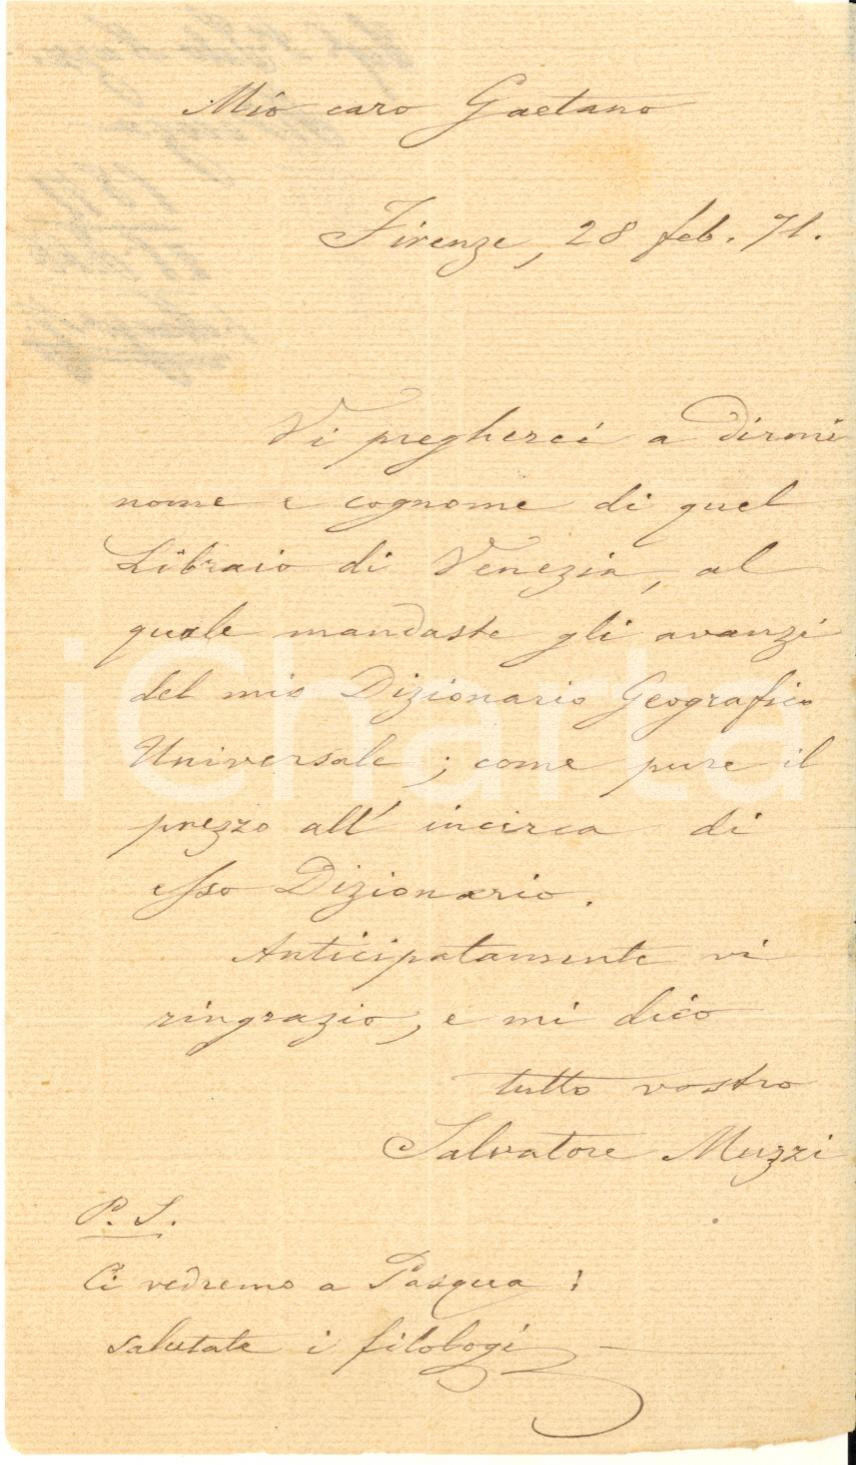 Mio caro Gaetano
Firenze, 28 feb. 71.
Vi pregherei a dirmi
nome e cognome di quel
Libraio di Venezia, al
quale mandaste gli avanzi
del mio Dizionario Geografico
Universale; come pure il
prezzo all'incirca di
esso Dizionario.
Anticipatamente vi
ringrazio, e mi dico
tutto vostro
Salvatore Muzzi
P. S.
Ci vedremo a Pasqua:
salutate i filologi
iCharta